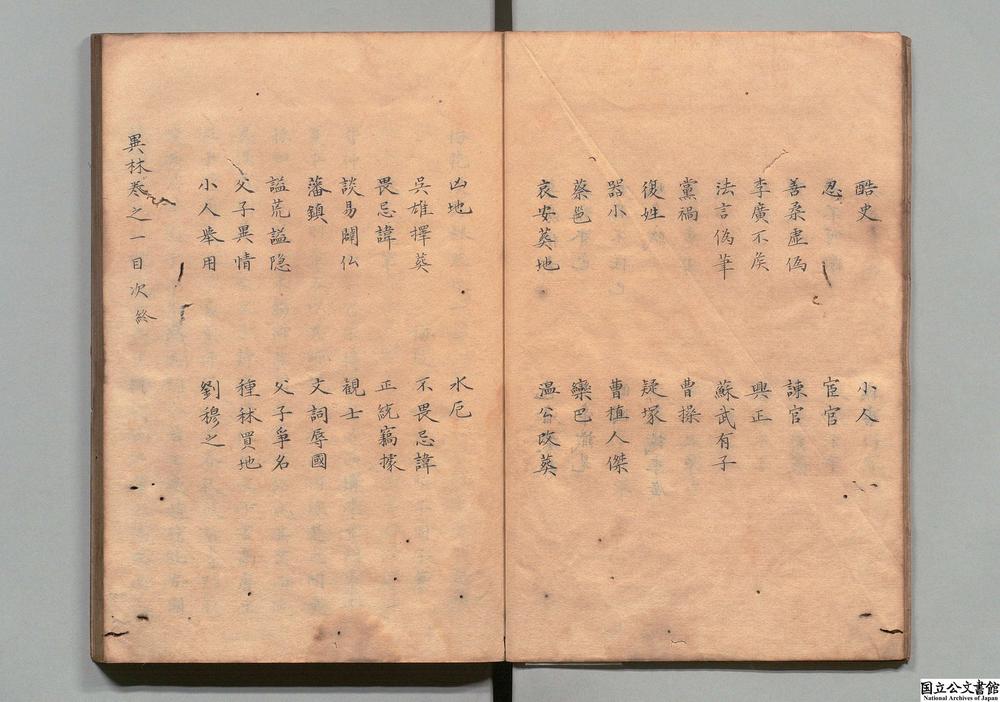 酷史 小人
忍 宦官
善柔虛偽 諫官
李廣不矦 興正
法言偽筆 蘇武有子
黨禍 曹操
復姓 疑塚
器小 曹植人傑
蔡邕 欒巴
哀安葬地 温公改葬
凶地 水厄
吳雄擇葬 不畏忌諱
畏忌諱 正統竊據
談易闢仏 觀士
藩鎮 文詞辱國
謚荒謚隐 父子爭名
父子異情 種秫買地
小人舉用 劉穆之
異林巻之一目次終
国立公文書館
National Archives of Japan